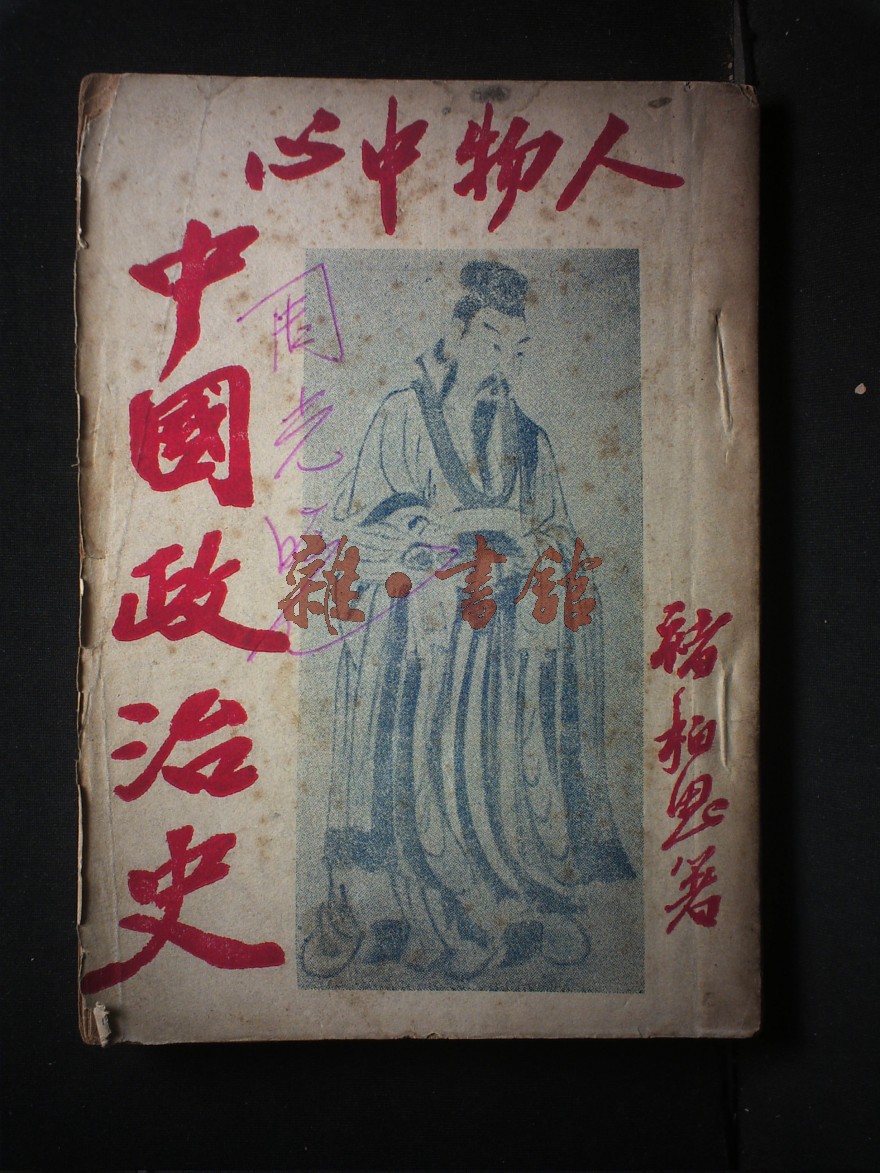 人物中心
中國政治史
褚柏思著
周光
雜·書館